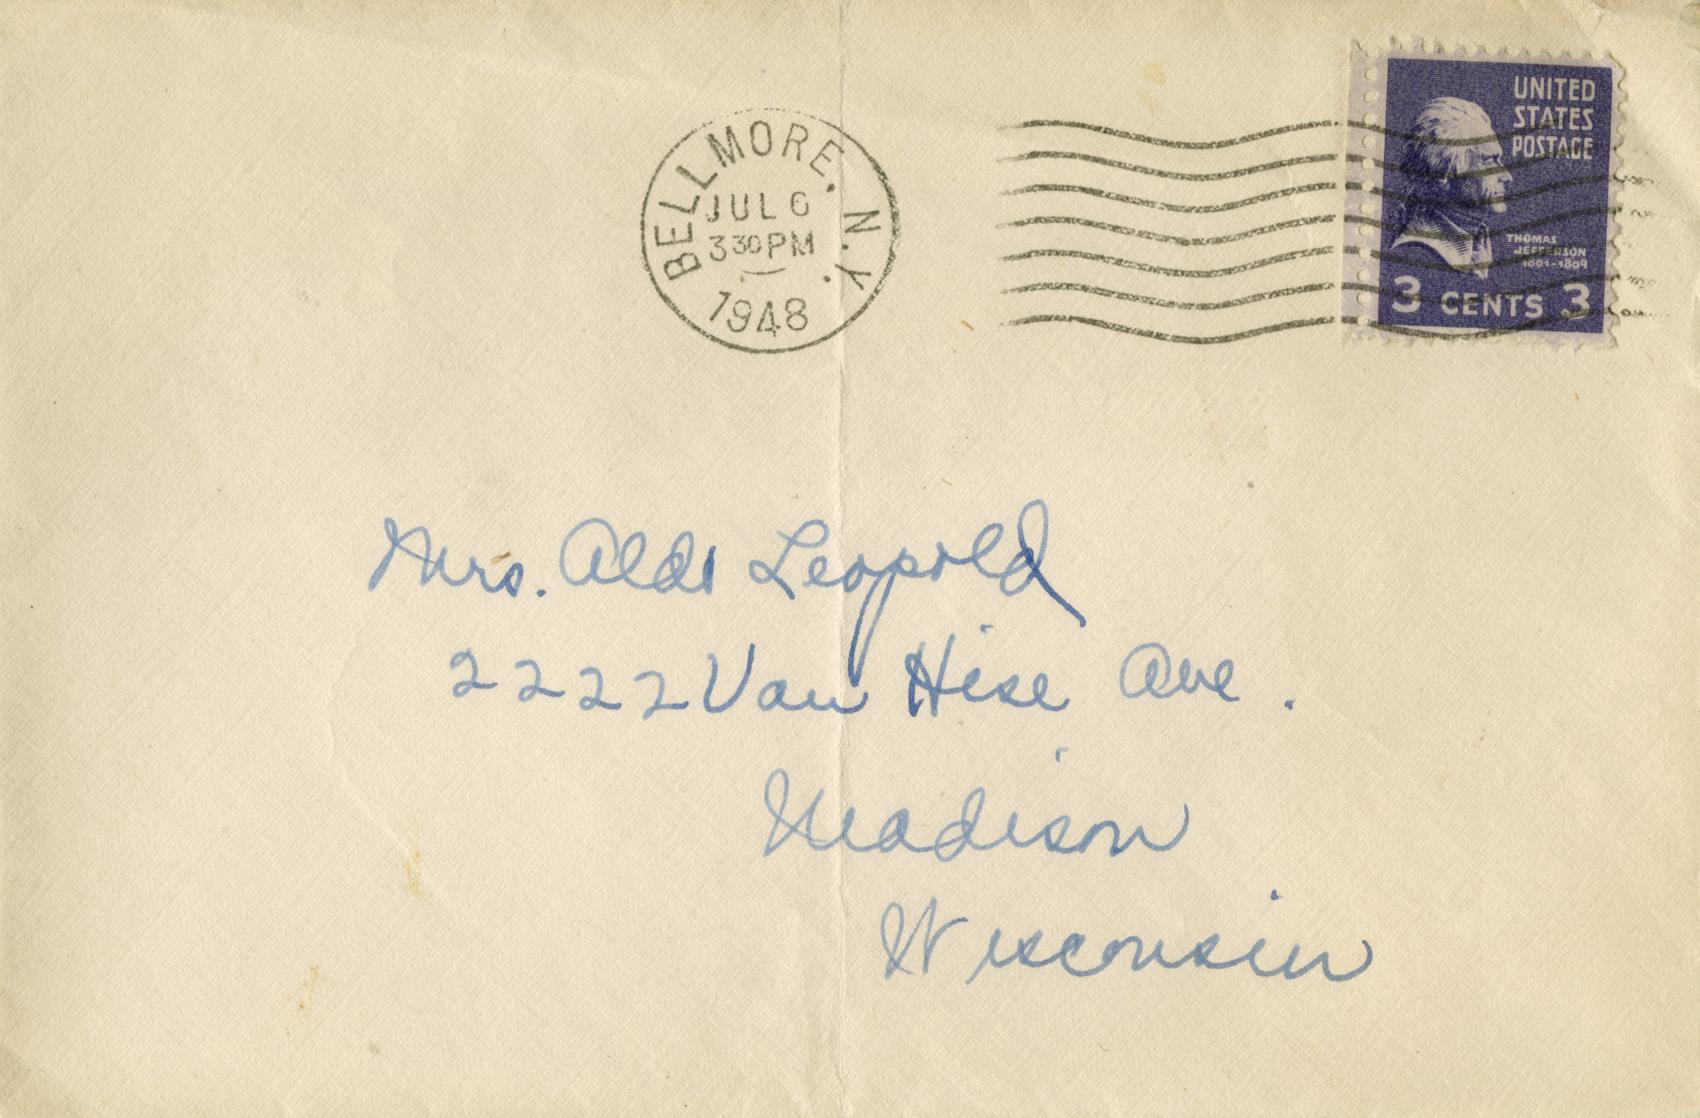 BELLMORE. N.Y.
JUL 6
330 PM
1948
UNITED
STATES
POSTAGE
THOMAS
JEFFERSON
1801-1809
3 CENTS 3
Mrs. Aldo Leopold
2222 Van Hise Ave.
Madison
Wisconsin